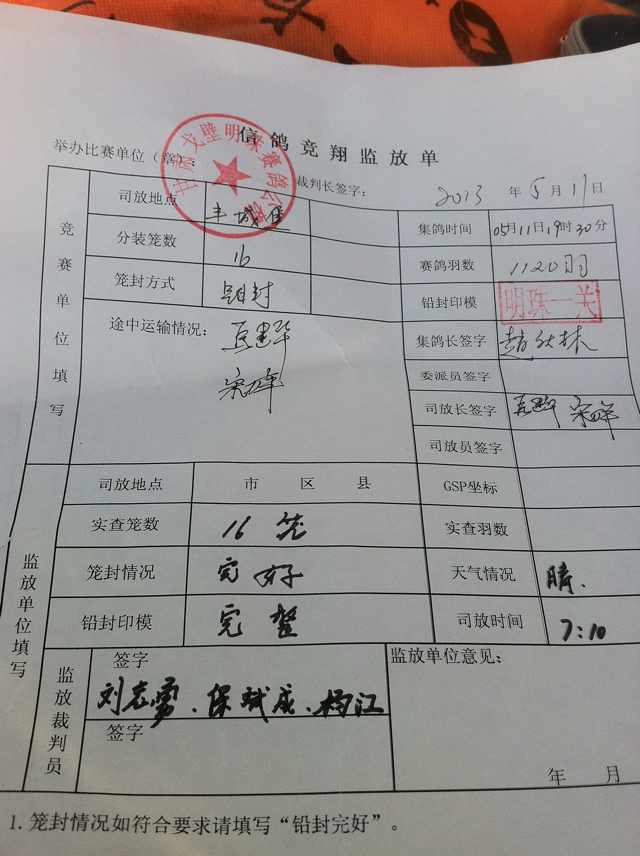 信鸽竞翔监放单
举办比赛单位(章):
戈壁明珠赛鸽公
裁判长签字:
2013 年 5 月 11 日
竞赛单位填写
司放地点
集鸽时间 05月11日19时30分
分装笼数 16 赛鸽羽数 1120羽
笼封方式 铅封 铅封印模 明珠一关
途中运输情况:
集鸽长签字
委派员签字
司放长签字
司放员签字
监放单位填写
司放地点 市 区 县 GSP坐标
实查笼数 16笼 实查羽数
笼封情况 完好 天气情况 晴.
铅封印模 完整 司放时间 7:10
监放裁判员
签字 监放单位意见:
刘志勇、保斌成、杨江
签字
年 月
1.笼封情况如符合要求请填写“铅封完好”。